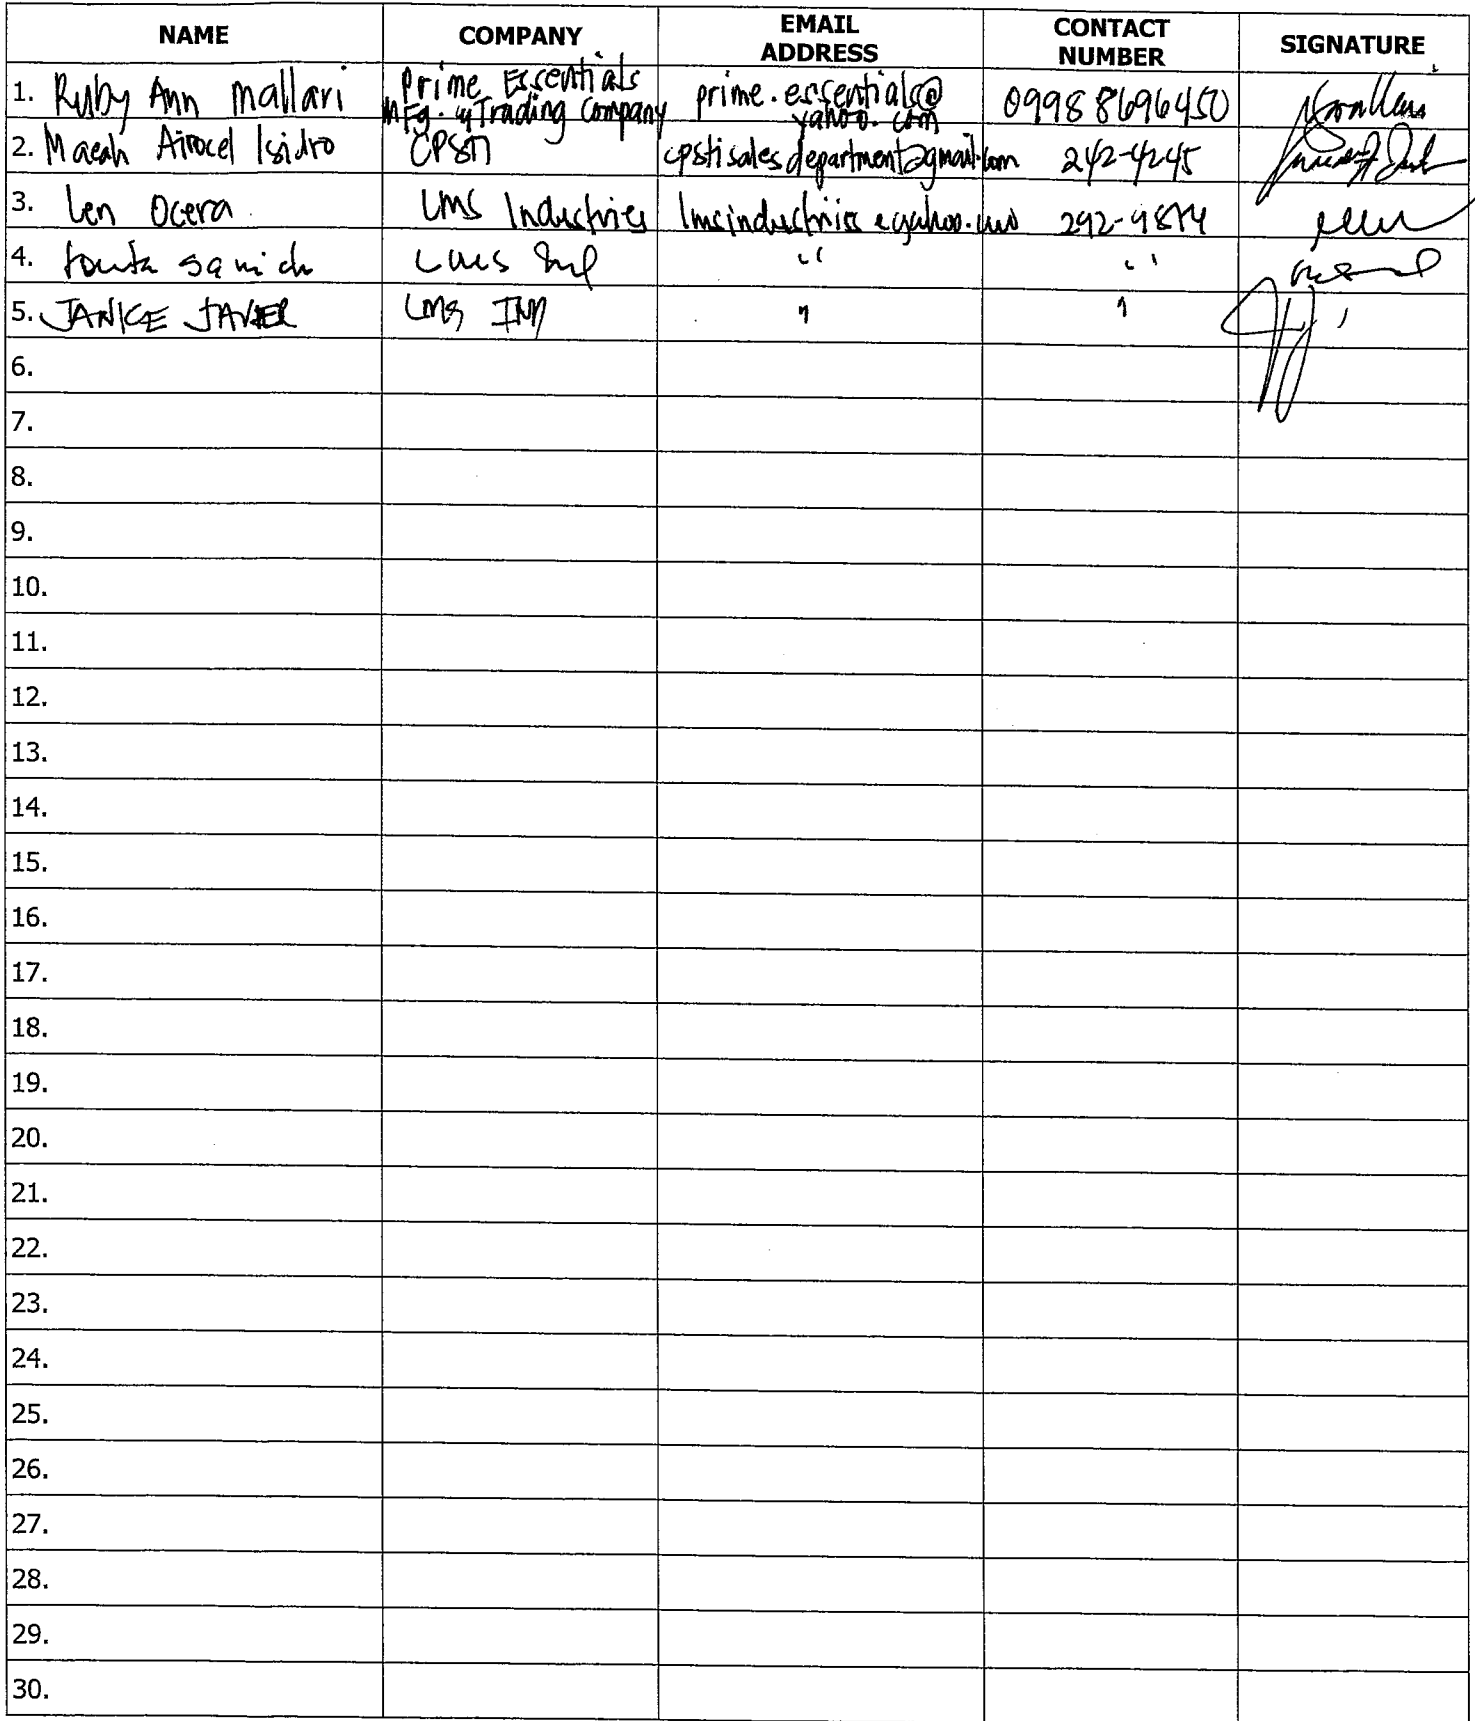 NAME COMPANY EMAIL ADDRESS CONTACT NUMBER SIGNATURE
1. Ruby Ann Mallari Prime Essentials Mfg. & Trading Company prime.essentials@yahoo.com 09988696450
2. Maeah Airocel Isidro CPSTI cpstisalesdepartment@gmail.com 242-4245
3. Len Ocera LMS Industries lmsindustries@yahoo.com 292-9874
4. LMS " "
5. JANICE JAVIER LMS IND " "
6.
7.
8.
9.
10.
11.
12.
13.
14.
15.
16.
17.
18.
19.
20.
21.
22.
23.
24.
25.
26.
27.
28.
29.
30.